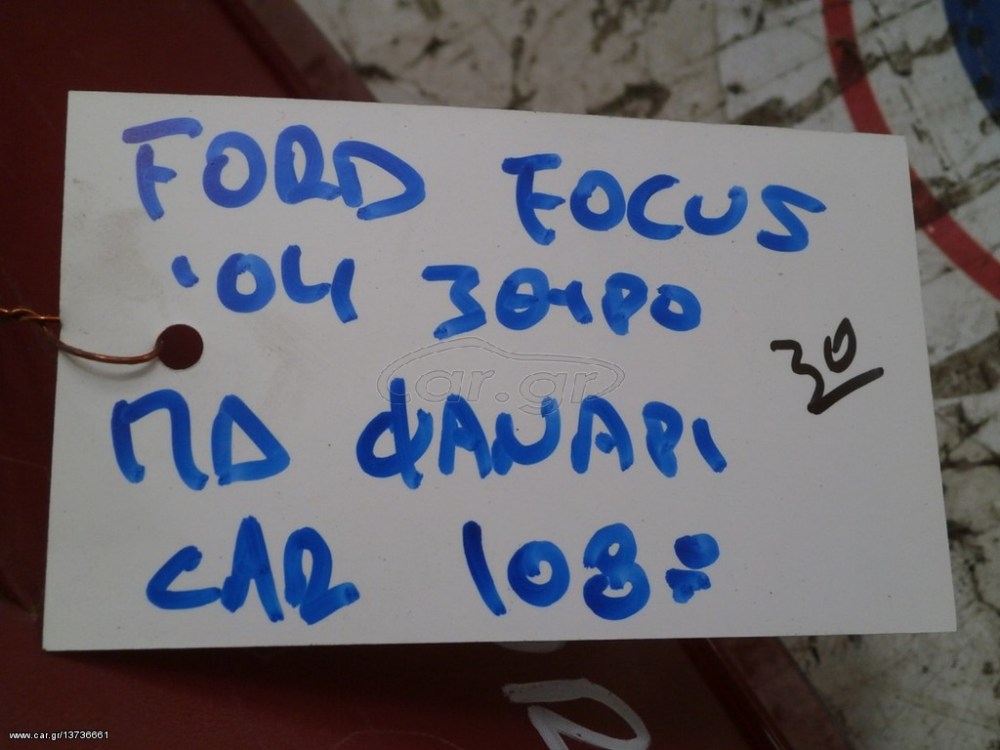 FORD FOCUS
'04 3ΘΥΡΟ
ΠΔ ΦΑΝΑΡΙ
30
car.gr
CAR 108
www.car.gr/13736661